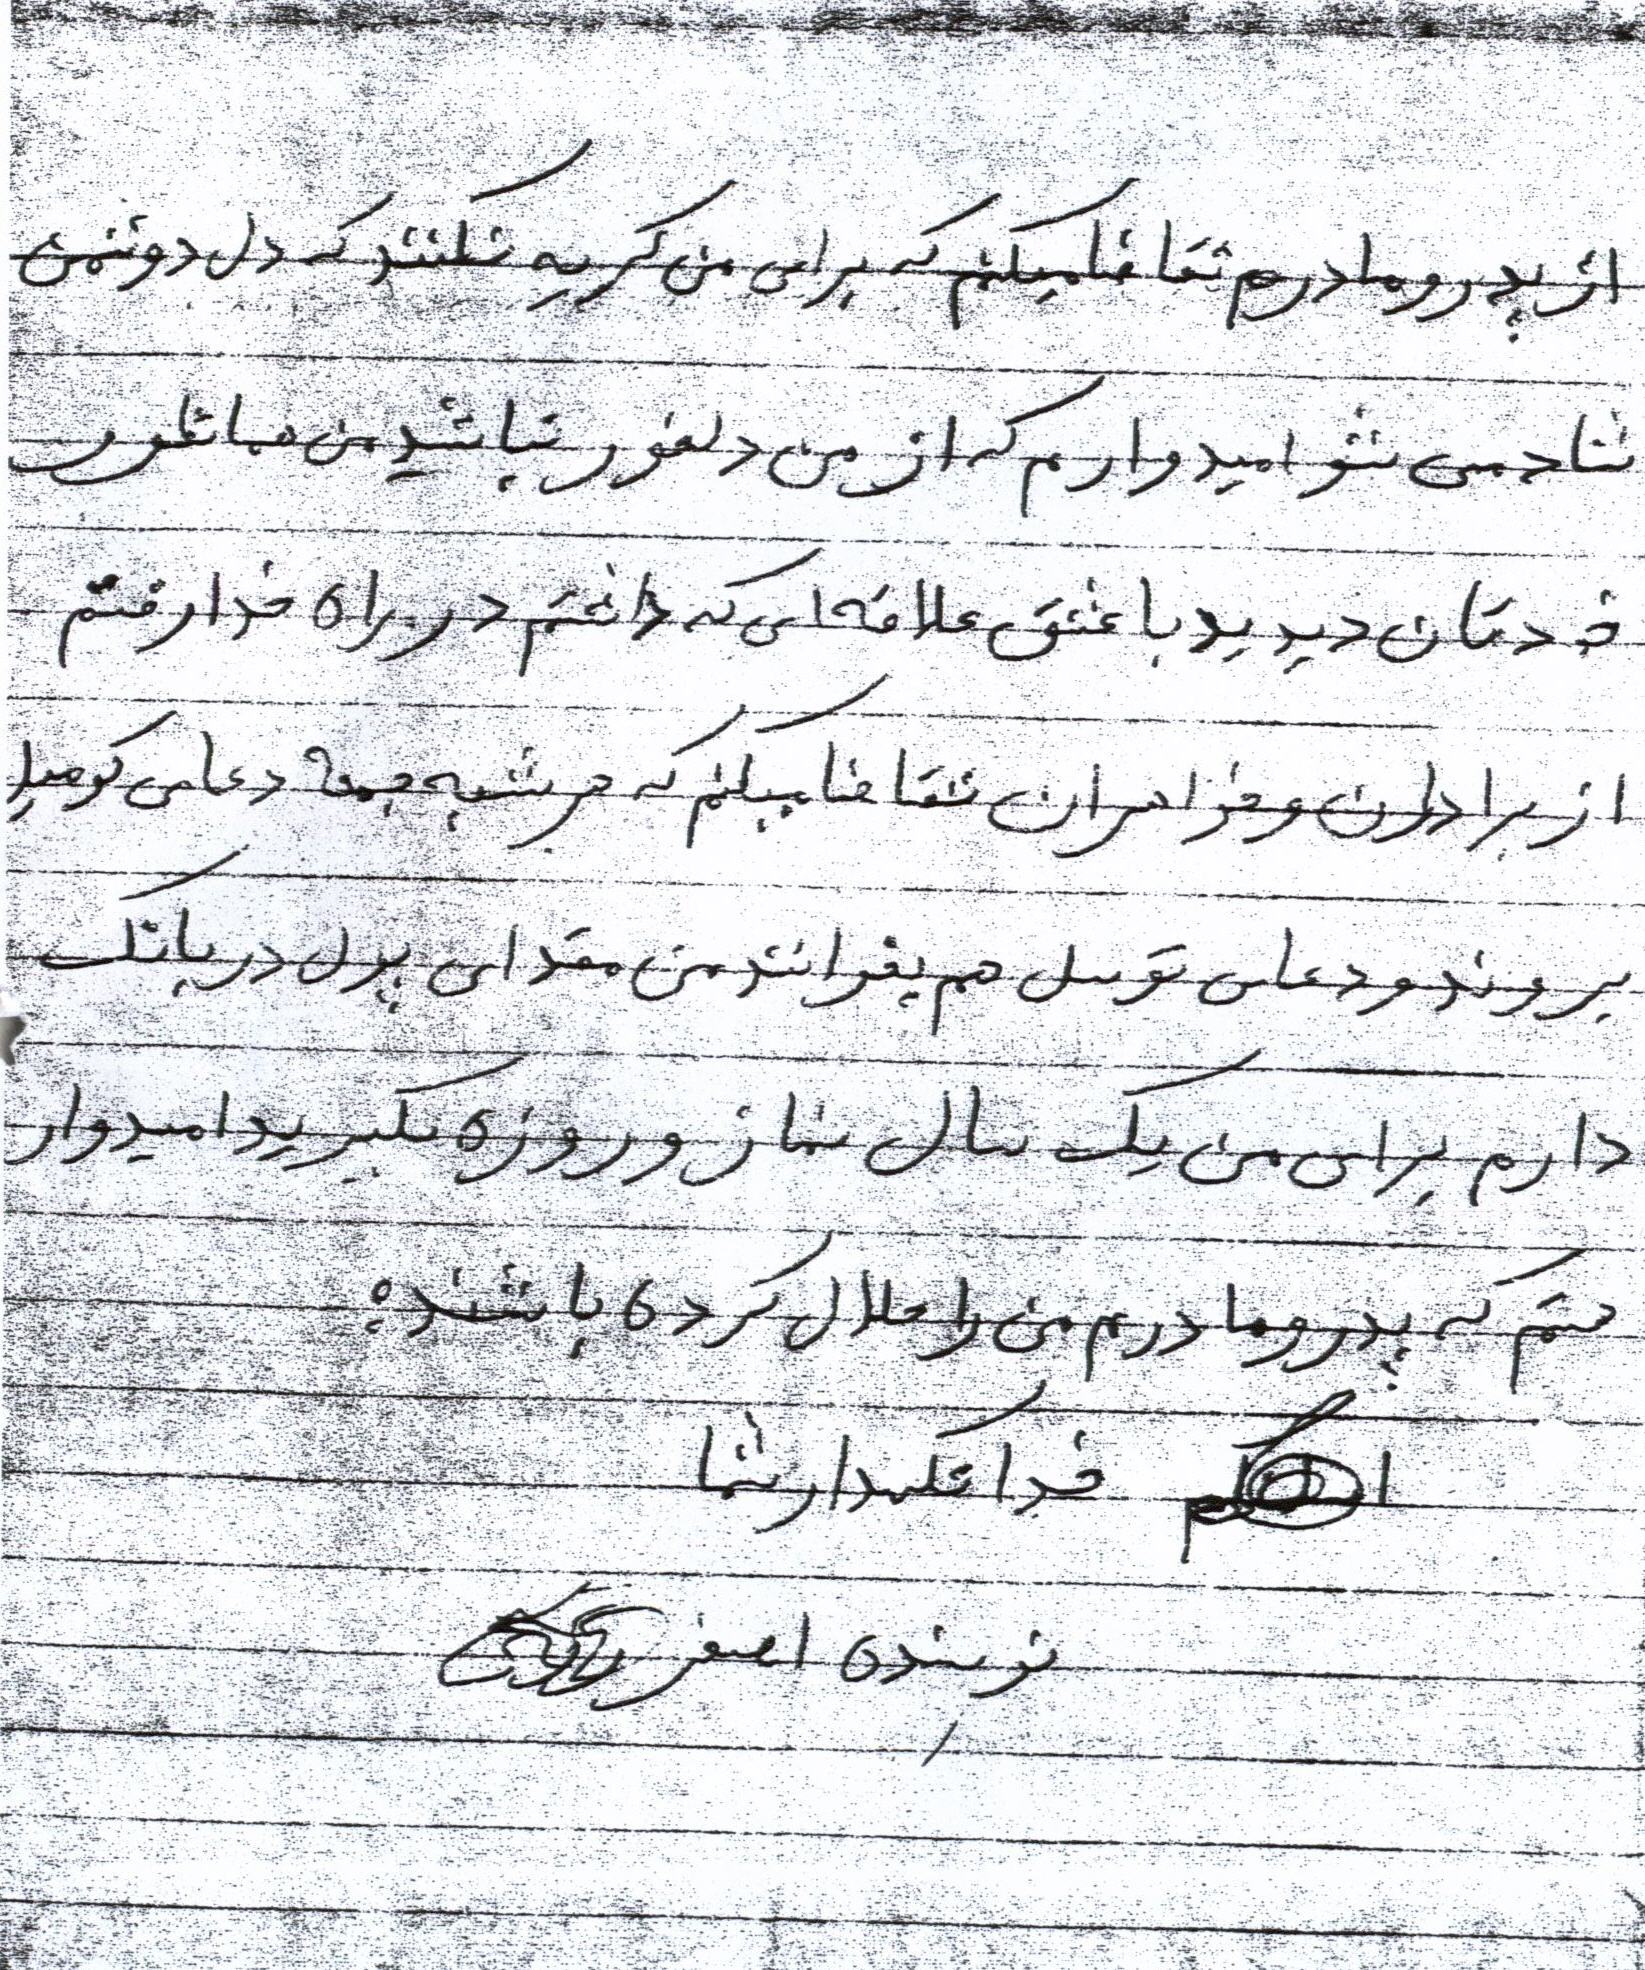 از پدر و مادرم تقاضا میکنم که برای من گریه نکنند که دل دوشمن
شاد می شو امیدوارم که از من دلخور نباشید من هماطور
خودتان دیدید با عشق علاقه ای که داشتم در راه خدا رفتم
از برادارن و خواهران تقاضا میکنم که هر شبه جمعه دعای کومیل
بروند و دعای توسل هم بخوانند من مقدای پول در بانک
دارم برای من یک سال نماز و روزه بگیرید امیدوار
هستم که پدر و مادرم من را حلال کرده باشند
خدا نگهدار شما
نویسنده اصغر